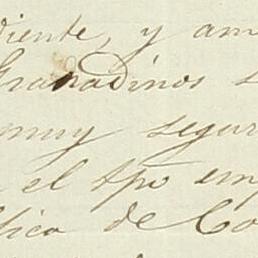 diente, y am
Granadinos s
muy segur
el tpo emp
blica de Co